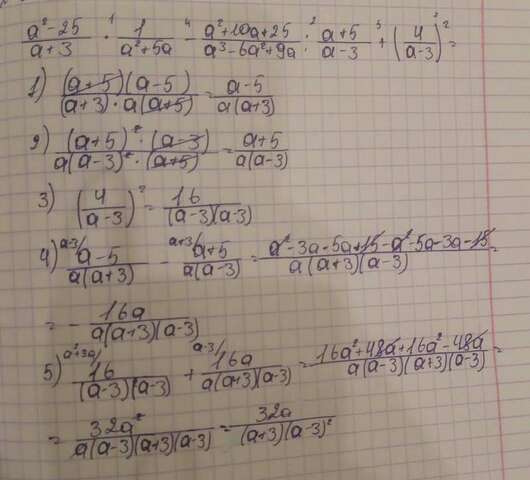 (a²-25)/(a+3) ·¹ 1/(a²+5a) -⁴ (a²+10a+25)/(a³-6a²+9a) :² (a+5)/(a-3) +⁵ (4/(a-3))²³ =
1) ((a+5)(a-5))/((a+3)·a(a+5)) = (a-5)/(a(a+3))
2) ((a+5)²·(a-3))/(a(a-3)²·(a+5)) = (a+5)/(a(a-3))
3) (4/(a-3))² = 16/((a-3)(a-3))
4) ᵃ⁻³/ (a-5)/(a(a+3)) - ᵃ⁺³/ (a+5)/(a(a-3)) = (a²-3a-5a+15-a²-5a-3a-15)/(a(a+3)(a-3)) =
= - 16a/(a(a+3)(a-3))
5) ᵃ²⁺³ᵃ/ 16/((a-3)(a-3)) + ᵃ⁻³/ 16a/(a(a+3)(a-3)) = (16a²+48a+16a²-48a)/(a(a-3)(a+3)(a-3)) =
= 32a²/(a(a-3)(a+3)(a-3)) = 32a/((a+3)(a-3)²)